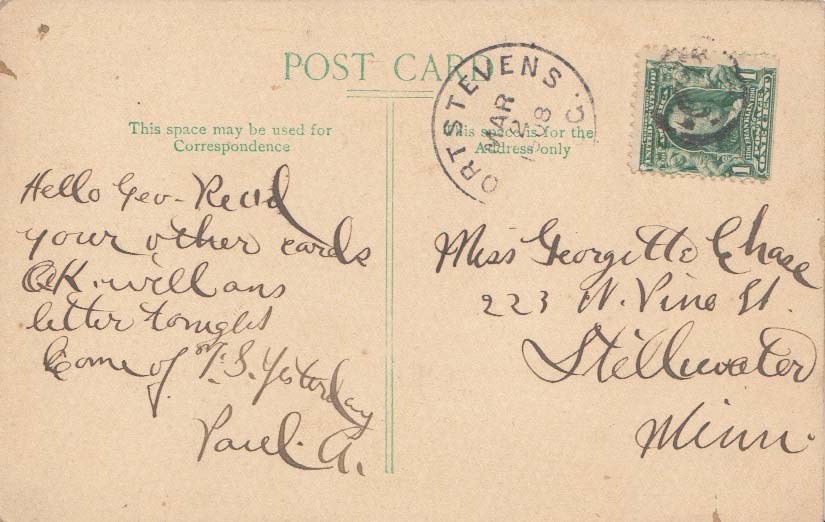 POST CARD
This space may be used for
Correspondence
This space is for the
Address only
ORT STEVENS
MAR
2
Hello Geo- Recd
your other cards
OK. will ans
letter tonight
Come of T. S. Yesterday
Paul. A.
Miss Georgette Chase
223 W. Pine St.
Stillwater
Minn.